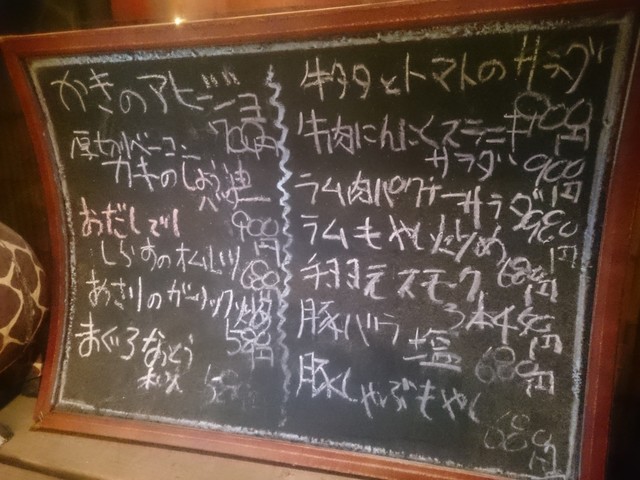 かきのアヒージョ
700円
厚切りベーコン
カキのしょう油
バター
900円
おだしでい
しらすのオムレツ
680円
あさりのガーリック炒め
580円
まぐろなっとう
580
牛タタとトマトのサラダ
900円
牛肉にんにくステーキ
サラダ 900円
ラム肉パクチーサラダ
980円
ラムもやし炒め
680円
手羽先スモーク
3本450円
豚バラ塩
680円
豚しゃぶもやし
680円